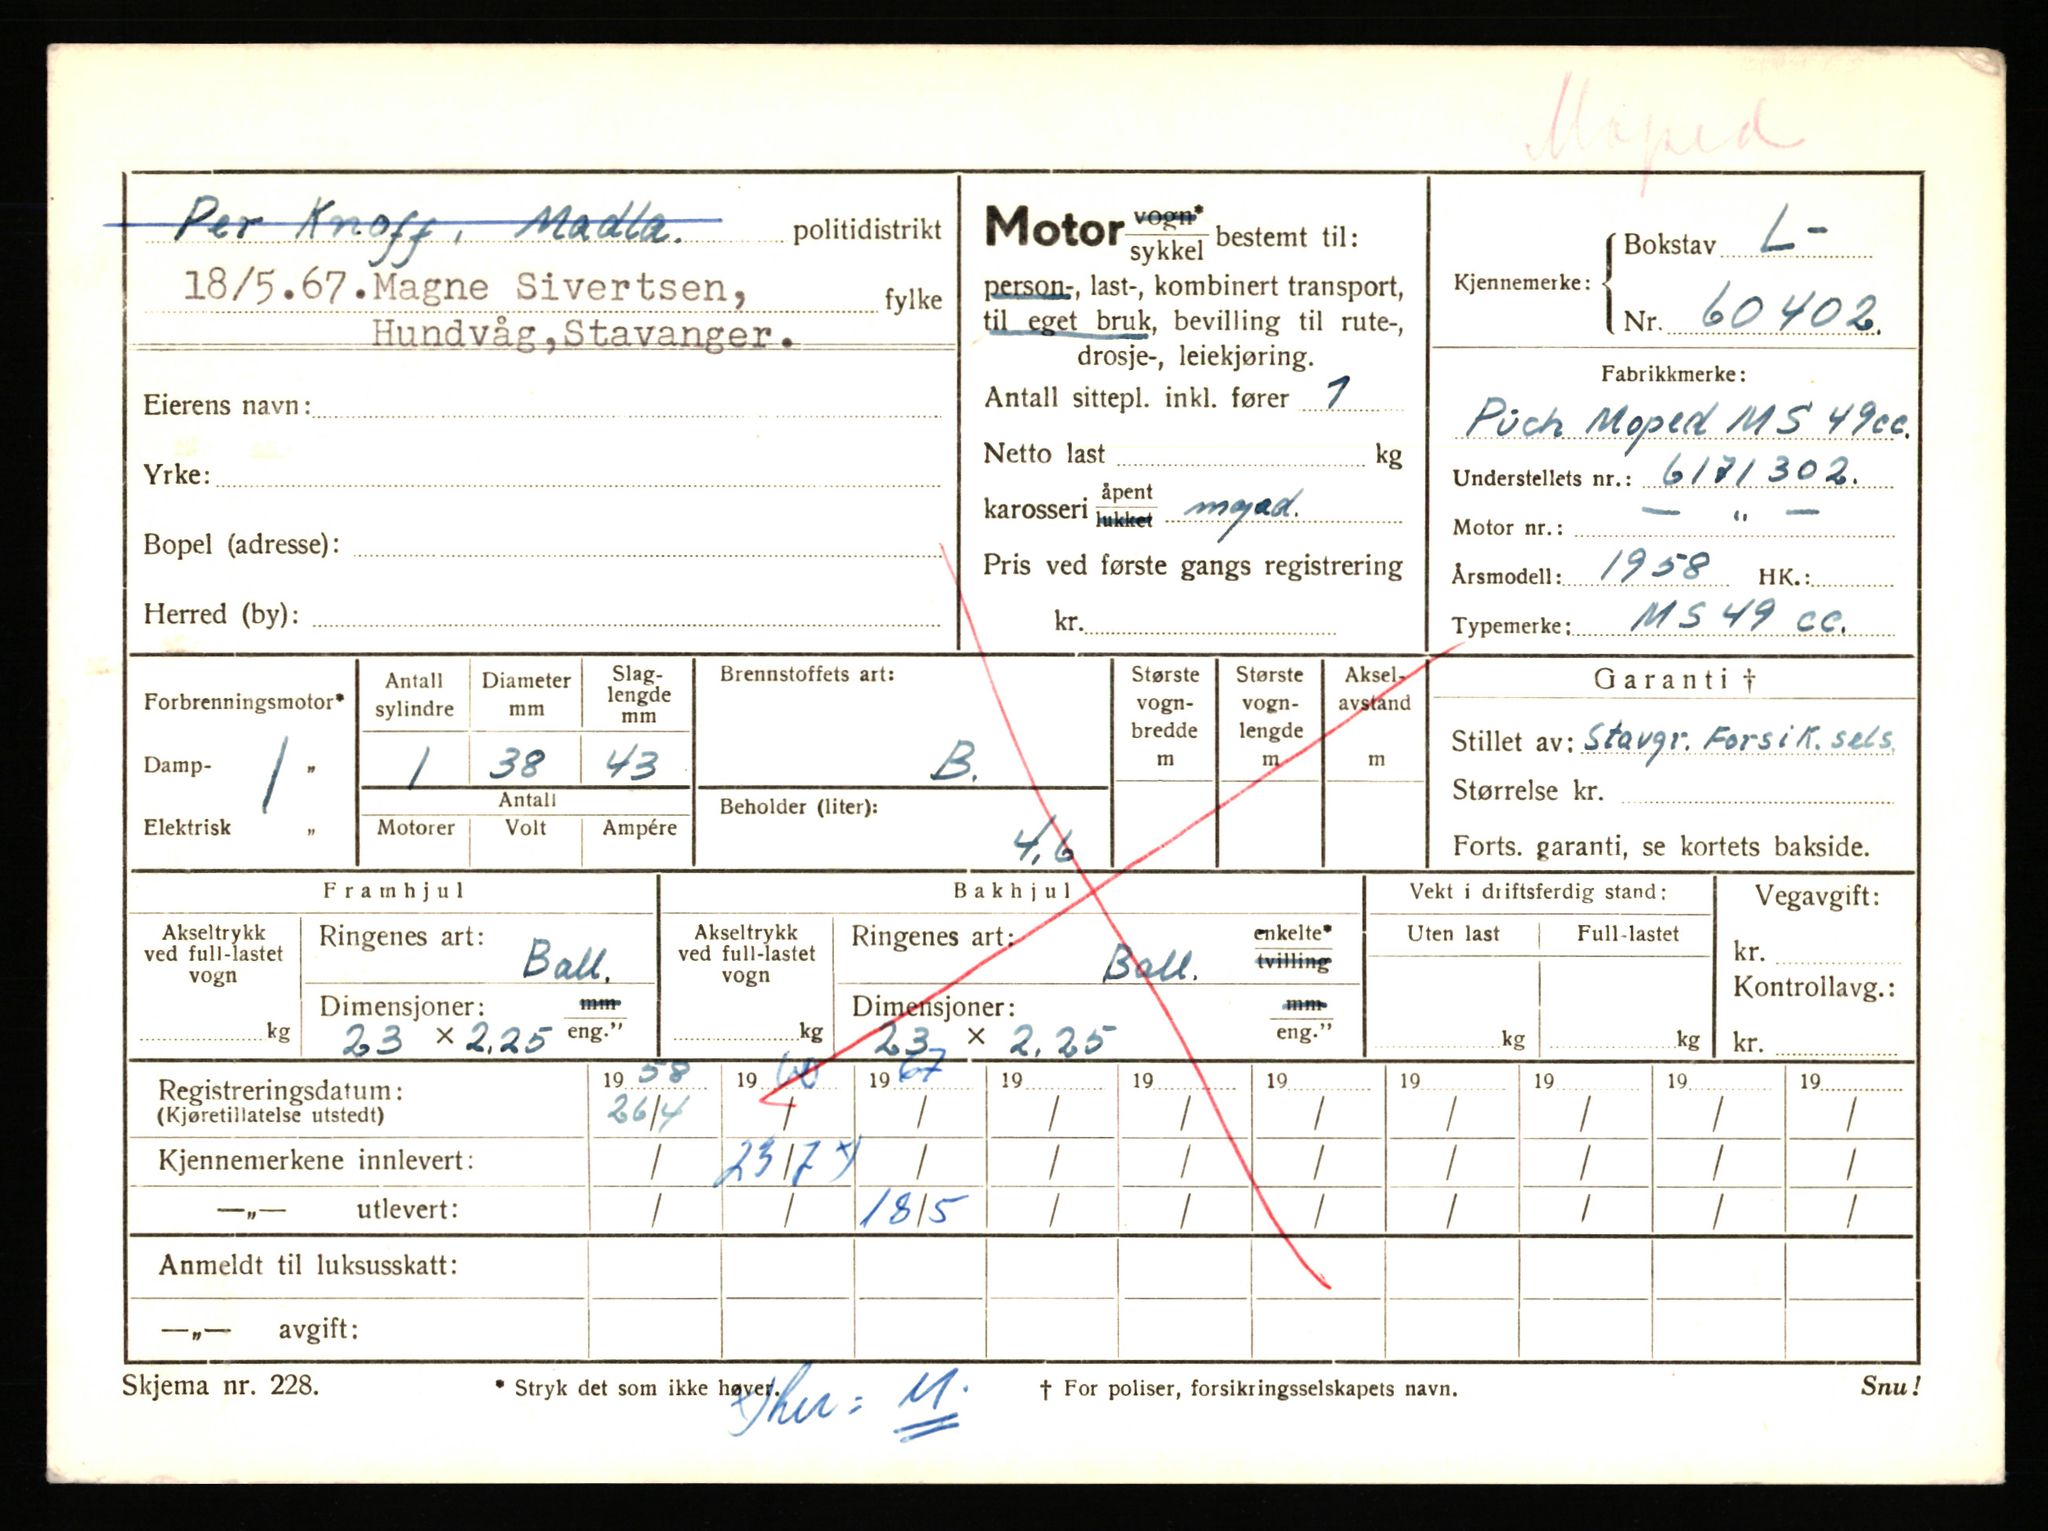 Moped
Per Knoff, Madla. politidistrikt
18/5.67. Magne Sivertsen, fylke
Hundvåg, Stavanger.
Eierens navn:
Yrke:
Bopel (adresse):
Herred (by):
Motor vogn* sykkel bestemt til:
person-, last-, kombinert transport,
til eget bruk, bevilling til rute-,
drosje-, leiekjøring.
Antall sittepl. inkl. fører 1
Netto last kg
karosseri åpent lukket moped.
Pris ved første gangs registrering
kr.
Kjennemerke: Bokstav L-
Nr. 60402.
Fabrikkmerke:
Puch Moped MS 49cc.
Understellets nr.: 6171302.
Motor nr.: — " —
Årsmodell: 1958 HK.:
Typemerke: MS 49 cc.
Forbrenningsmotor*
Damp- "
Elektrisk "
/
Antall sylindre
1
Diameter mm
38
Slag-lengde mm
43
Antall
Motorer Volt Ampére
Brennstoffets art:
B.
Beholder (liter):
4,6
Største vogn-bredde m
Største vogn-lengde m
Aksel-avstand m
Garanti †
Stillet av: Stavgr. Forsik. sels.
Størrelse kr.
Forts. garanti, se kortets bakside.
Framhjul
Akseltrykk ved full-lastet vogn
kg
Ringenes art: Ball.
Dimensjoner: mm
23 × 2,25 eng.”
Bakhjul
Akseltrykk ved full-lastet vogn
kg
Ringenes art: Ball. enkelte* tvilling
Dimensjoner: mm
23 × 2,25 eng.”
Vekt i driftsferdig stand:
Uten last Full-lastet
kg kg
Vegavgift:
kr.
Kontrollavg.:
kr.
Registreringsdatum: 1958 1960 1967 19 19 19 19 19 19 19
(Kjøretillatelse utstedt) 26/4 / / / / / / / / /
Kjennemerkene innlevert: / 23/7 x) / / / / / / / /
—„— utlevert: / / 18/5 / / / / / / /
Anmeldt til luksusskatt:
—„— avgift:
Skjema nr. 228. * Stryk det som ikke høver. † For poliser, forsikringsselskapets navn. Snu!
x) her = M.